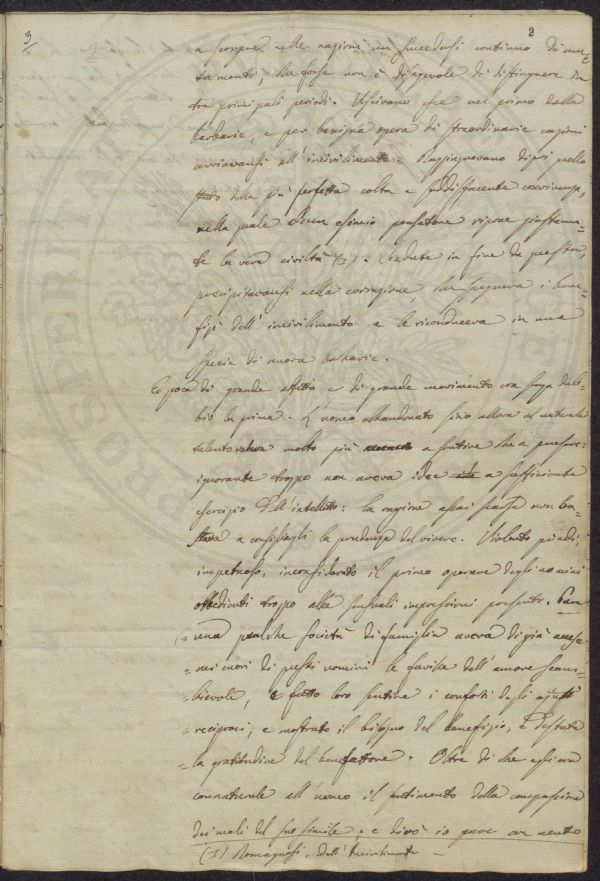 3
2
a scorgere nelle nazioni un succedersi continuo di mu-
tamenti, che forse non è disagevole di distinguere in
tre principali periodi. Uscivano esse nel primo dalla
barbarie, e per benigna opera di straordinarie cagioni
avviavansi all'incivilimento. Raggiugnevano dipoi nello
stato della più perfetta colta e soddisfacente convivenza,
nella quale alcun esimio pensatore ripone giustamen-
te la vera civiltà (1). Cadute in fine da questa,
precipitavansi nella corruzione, che spegneva i bene-
fizj dell'incivilimento e le riconduceva in una
specie di nuova barbarie.
Epoca di grande affetto e di grande movimento era senza dub-
bio la prima. L'uomo abbandonato sino allora al naturale
talento molto più a sentire che a pensare:
ignorante troppo non aveva idee a sufficiente
esercizio dell'intelletto: la ragione assai scarsa non ba-
stava a consigliargli la prudenza del vivere. Violento quindi,
impetuoso, inconsiderato il primo operare degli uomini
obbedienti troppo alle sensuali impressioni presenti.
una qualche società di famiglia aveva di già accese
nei cuori di questi uomini le faville dell'amore scam-
bievole, e fatto loro sentire i conforti degli ajuti
reciproci, e mostrato il bisogno del benefizio, e destata
la gratitudine del benefattore. Oltre di che egli era
connaturale all'uomo il sentimento della compassione
dei mali del suo simile; e dirò io pure
(1) Romagnosi, Dell'Incivilimento